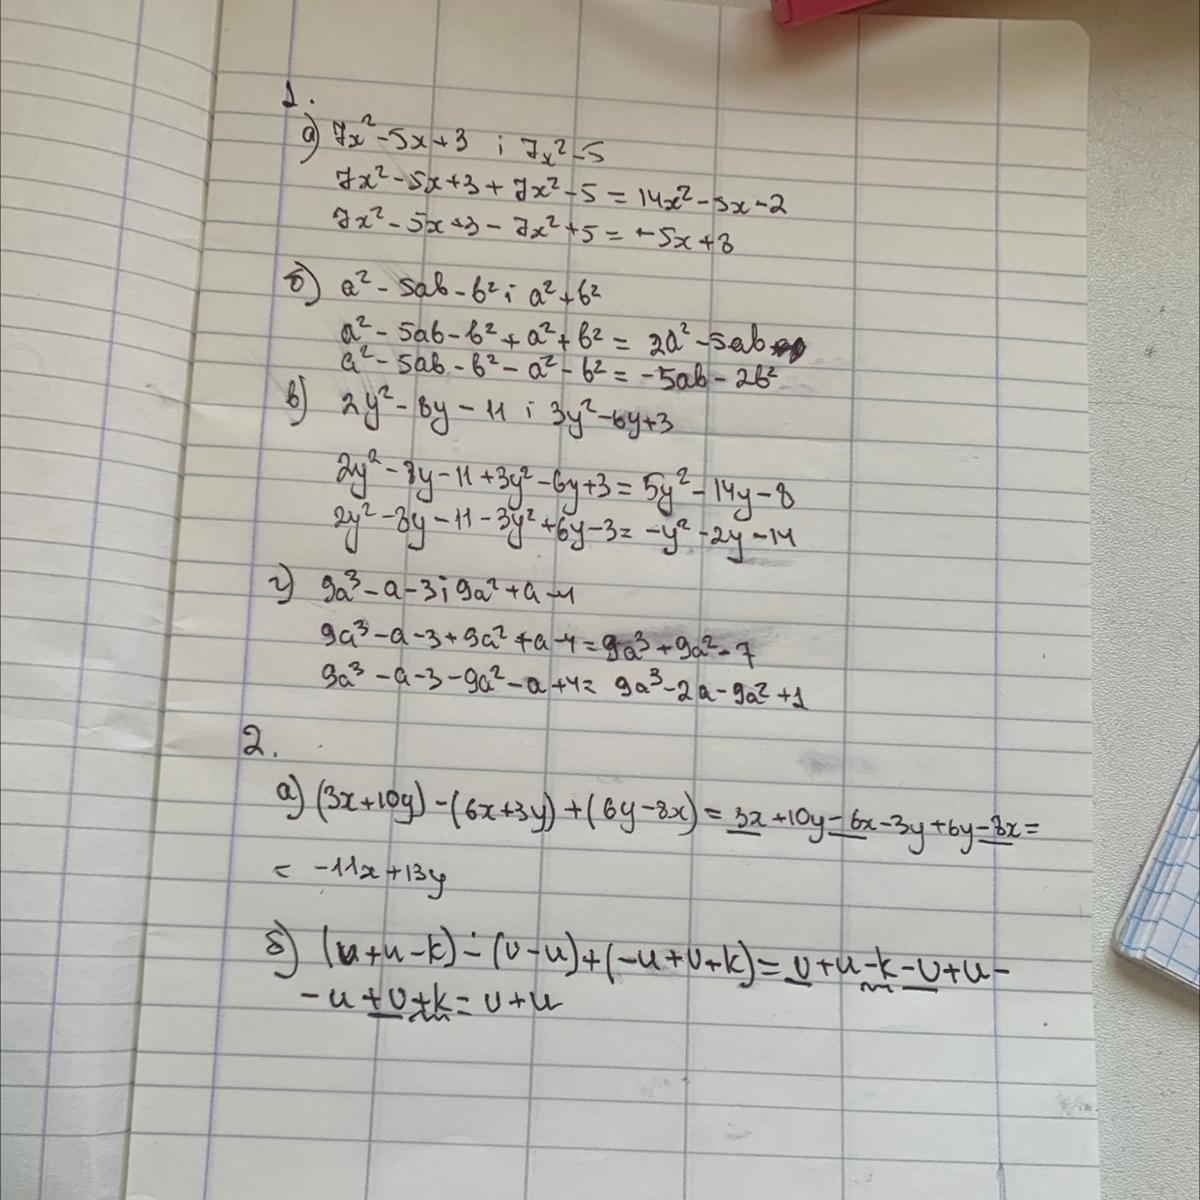 1.
а) 7x² - 5x + 3 і 7x² - 5
7x² - 5x + 3 + 7x² - 5 = 14x² - 5x - 2
7x² - 5x + 3 - 7x² + 5 = -5x + 8
б) a² - 5ab - b² і a² + b²
a² - 5ab - b² + a² + b² = 2a² - 5ab
a² - 5ab - b² - a² - b² = -5ab - 2b²
в) 2y² - 8y - 11 і 3y² - 6y + 3
2y² - 8y - 11 + 3y² - 6y + 3 = 5y² - 14y - 8
2y² - 8y - 11 - 3y² + 6y - 3 = -y² - 2y - 14
г) 9a³ - a - 3 і 9a² + a - 4
9a³ - a - 3 + 9a² + a - 4 = 9a³ + 9a² - 7
9a³ - a - 3 - 9a² - a + 4 = 9a³ - 2a - 9a² + 1
2.
а) (3x + 10y) - (6x + 3y) + (6y - 8x) = 3x + 10y - 6x - 3y + 6y - 8x =
= -11x + 13y
б) (v + u - k) - (v - u) + (-u + v + k) = v + u - k - v + u -
- u + v + k = v + u